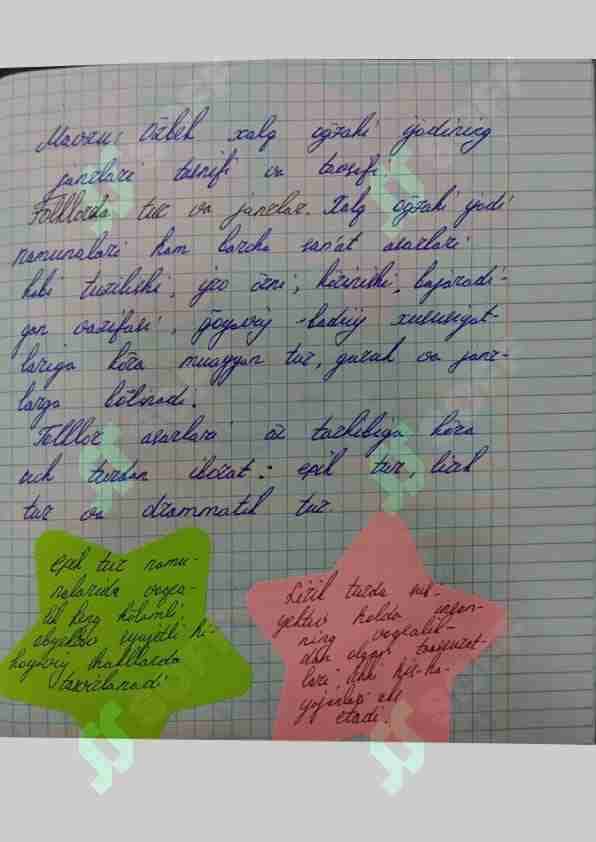 Mavzu: Oʻzbek xalq ogʻzaki ijodining
janrlari tasnifi va tavsifi.
Folklorda tur va janrlar. Xalq ogʻzaki ijodi
namunalari ham barcha sanʼat asarlari
kabi tuzilishi, ijro oʻrni, koʻrinishi, bajaradi-
gan vazifasi, gʻoyaviy-badiiy xususiyat-
lariga koʻra muayyan tur, guruh va janr-
larga boʻlinadi.
Folklor asarlari oʻz tarkibiga koʻra
uch turdan iborat: epik tur, lirik
tur va drammatik tur.
epik tur namu-
nalarida voqea-
lik keng koʻlamli
obyektiv syujetli hi-
koyaviy shakllarda
tasvirlanadi
Lirik turda sub-
yektiv holda inson-
ning voqealik-
dan olgan taassurot-
lari ichki his-ha-
yajonlari aks
etadi.